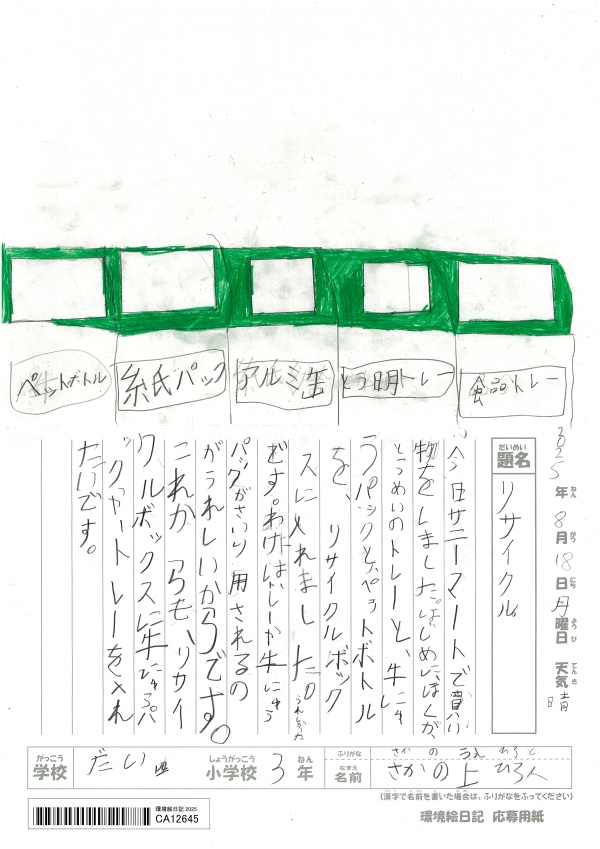 ペットボトル
紙パック
アルミ缶
とう明トレー
食品トレー
2025年8月18日月曜日 天気 晴
ねん がつ にち ようび てんき
だいめい
題名
リサイクル
今日サニーマートで買い
物をしました。はじめにぼくが、
とうめいのトレーと、牛にゅ
うパックとペットボトル
を、リサイクルボック
スに入れました。うれしかった
です。わけは、トレーか牛にゅう
パックがさいり用されるの
がうれしいからです。
これからも、リサイ
クルボックスに牛にゅうパ
ックやトレーを入れ
たいです。
がっこう
学校
だい四
しょうがっこう
小学校
3
ねん
年
ふりがな
さかのうえ ひろと
なまえ
名前
さかの上 ひろ人
(漢字で名前を書いた場合は、ふりがなをふってください)
環境絵日記 2025
CA12645
環境絵日記 応募用紙